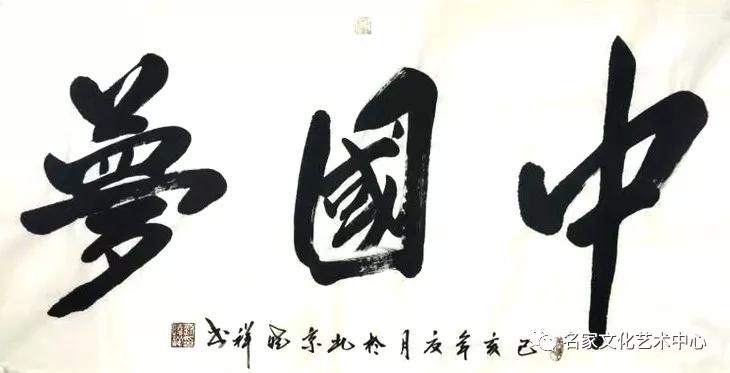 中國夢
己亥年夏月於北京 祥书
名家文化艺术中心